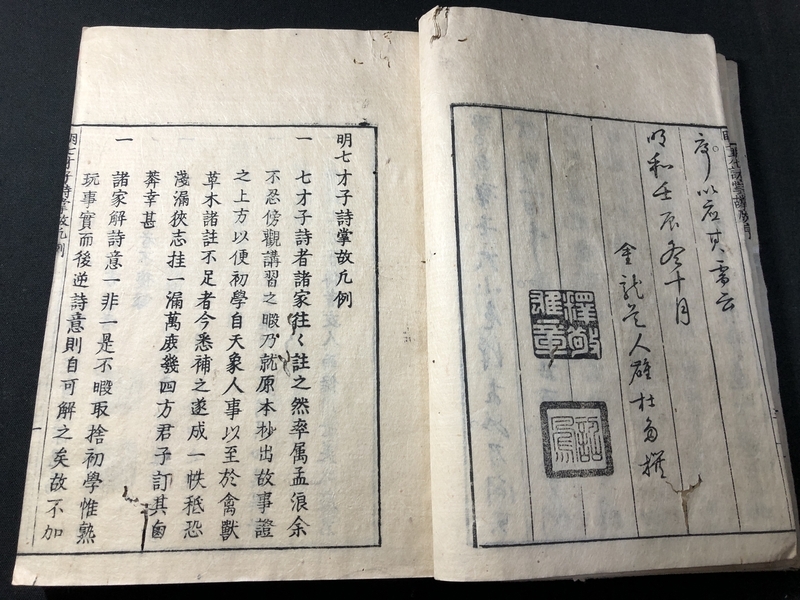 序以應其需云
明和壬辰冬十月
金龍道人
明七才子詩掌故凡例
一　七才子詩者諸家往〻註之然率属孟浪余
不忍傍觀講習之暇乃就原本抄出故事證
之上方以便初學自天象人事以至於禽獸
草木諸註不足者今悉補之遂成一帙秪恐
淺漏狹志挂一漏萬庶幾四方君子訂其鹵
莽幸甚
一　諸家解詩意一非一是不暇取捨初學惟熟
玩事實而後逆詩意則自可解之矣故不加
明七才子詩掌故凡例
一